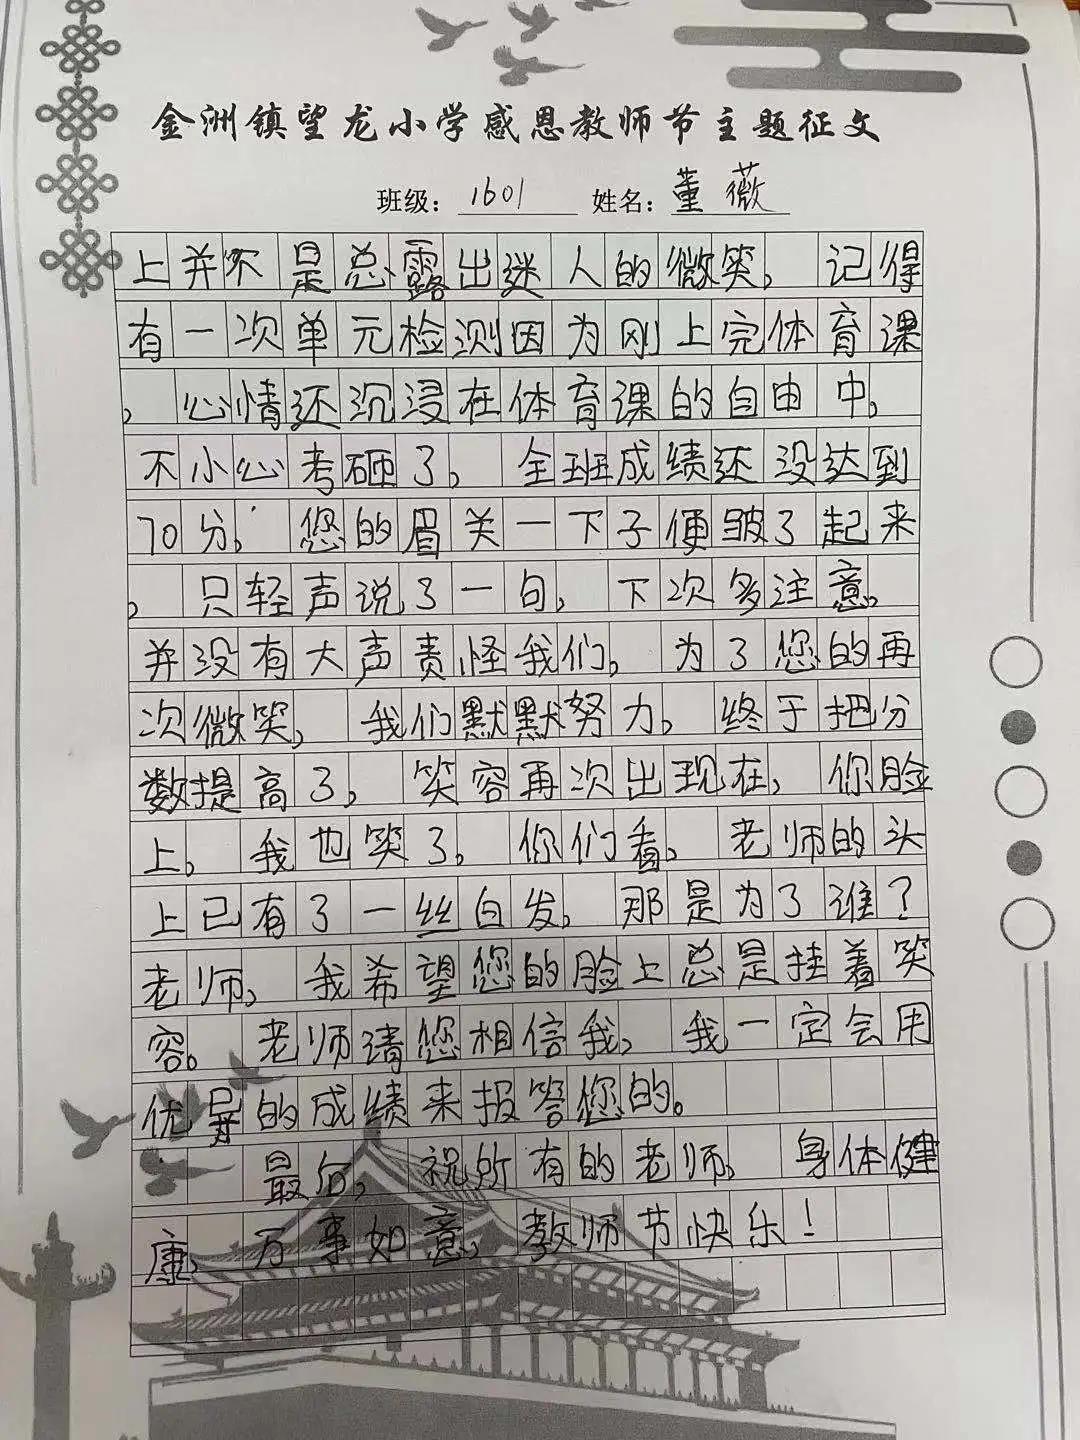 金洲镇望龙小学感恩教师节主题征文
班级：1601 姓名：董薇
上并不是总露出迷人的微笑，记得
有一次单元检测因为刚上完体育课
，心情还沉浸在体育课的自由中，
不小心考砸了，全班成绩还没达到
70分，您的眉关一下子便皱了起来
，只轻声说了一句，下次多注意，
并没有大声责怪我们，为了您的再
次微笑，我们默默努力，终于把分
数提高了，笑容再次出现在，你脸
上，我也笑了，你们看，老师的头
上已有了一丝白发，那是为了谁？
老师，我希望您的脸上总是挂着笑
容。老师请您相信我，我一定会用
优异的成绩来报答您的。
最后，祝所有的老师，身体健
康，万事如意，教师节快乐！